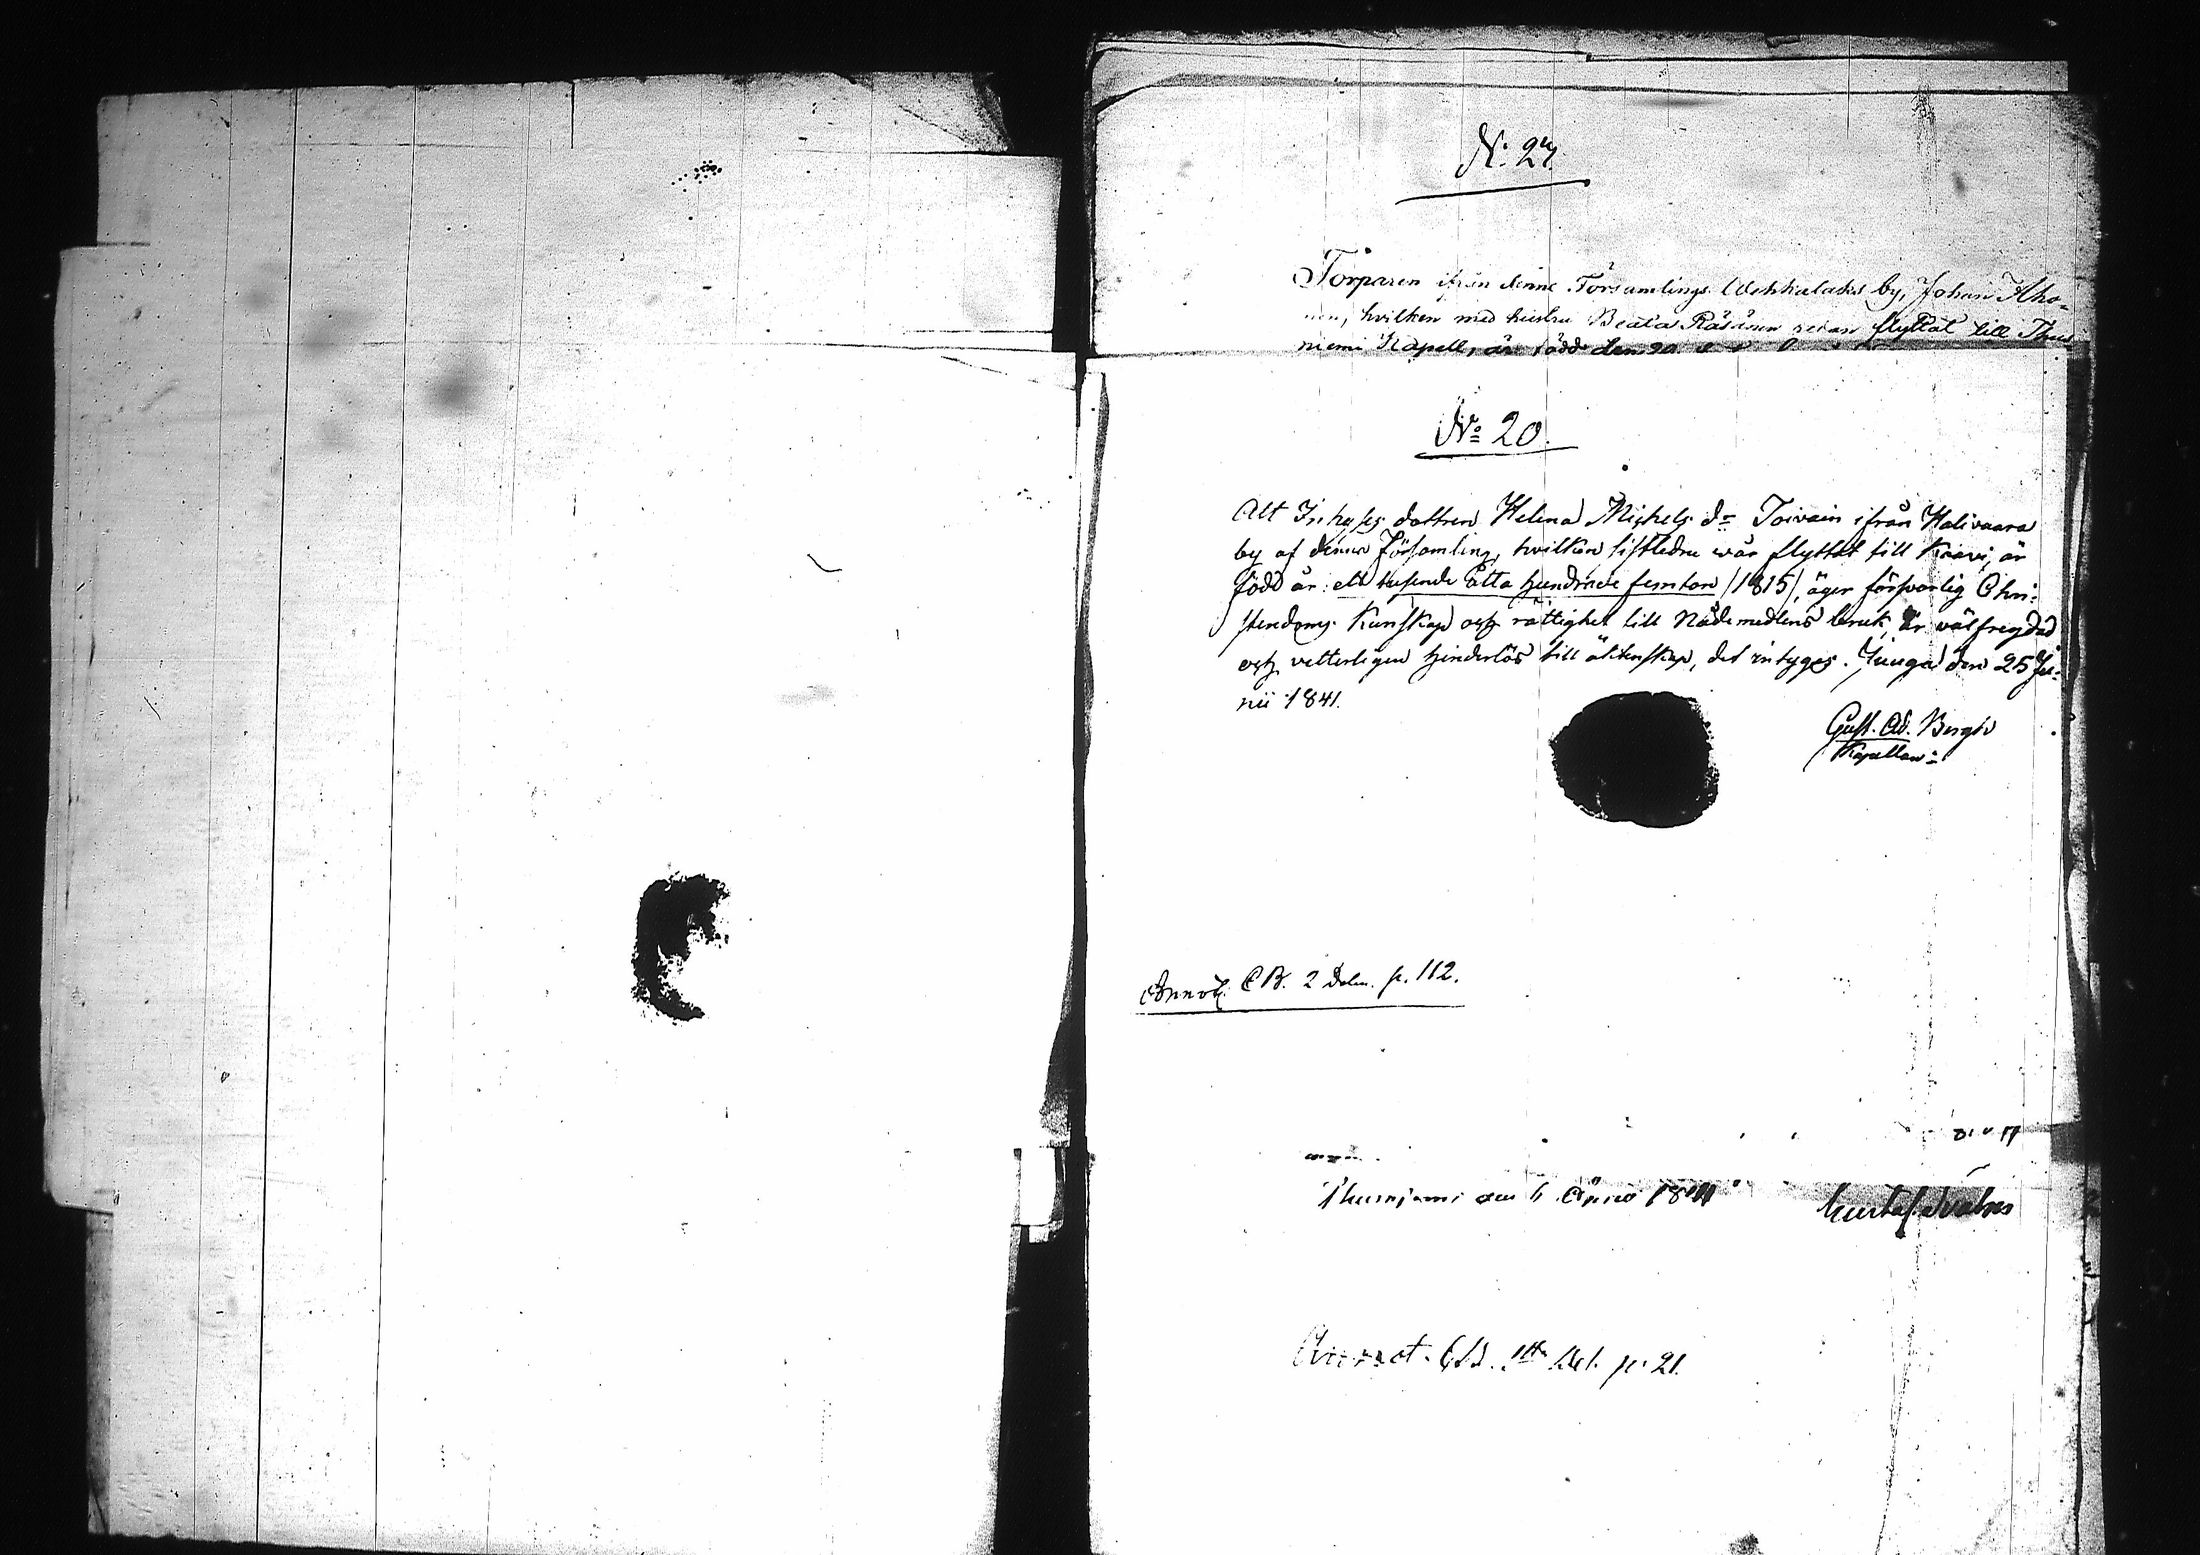 N: 27.
Torparen ifrån denne Församlings Wehkalaks by, Johan Aho-
nen, hvilken med hustru Beata Räsänen redan flyttat till Thus-
niemi Kapell, är född den 20
No 20.
Att Inhyses dottren Helena Michels dr Toivain ifrån Halivaara
by af denna Församling, hvilken sistledne vår flyttat till Kaavi, är
född år ett tusende åtta hundrade femton /1815/, äger försvarlig Chri-
stendoms Kunskap och rättighet till Nådemedlens bruk, är välfrejdad
och vetterligen hinderlös till äktenskap, det intygas. Juuga den 25 Ju-
nii 1841.
Gust. Ad. Bergh
Kapellan
Annot. CB. 2 Delen p. 112.
Thusniemi den Anno 1841
Gustaf
Annot. CB. Del. p. 21.